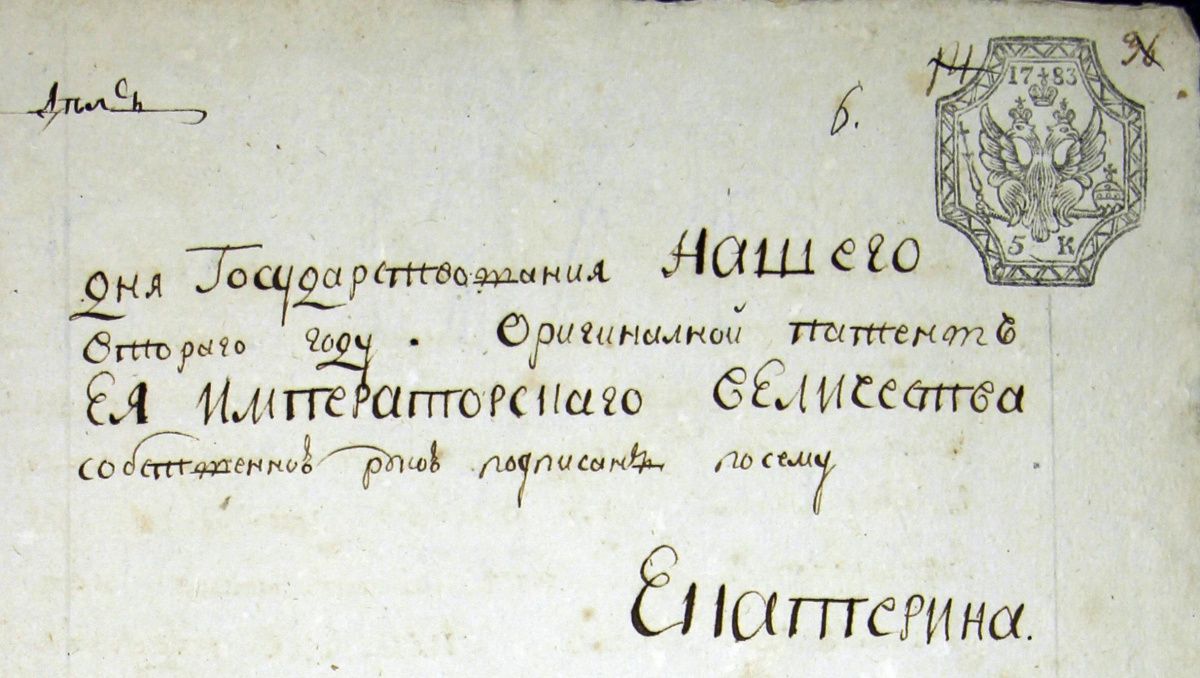 6.
1783
5 К
дня Государствования НАШЕГО
Втораго году. Оригиналной патентъ
ЕЯ ИМПЕРАТОРСКАГО ВЕЛИЧЕСТВА
собственною рукою подписанъ по сему
Екатерина.